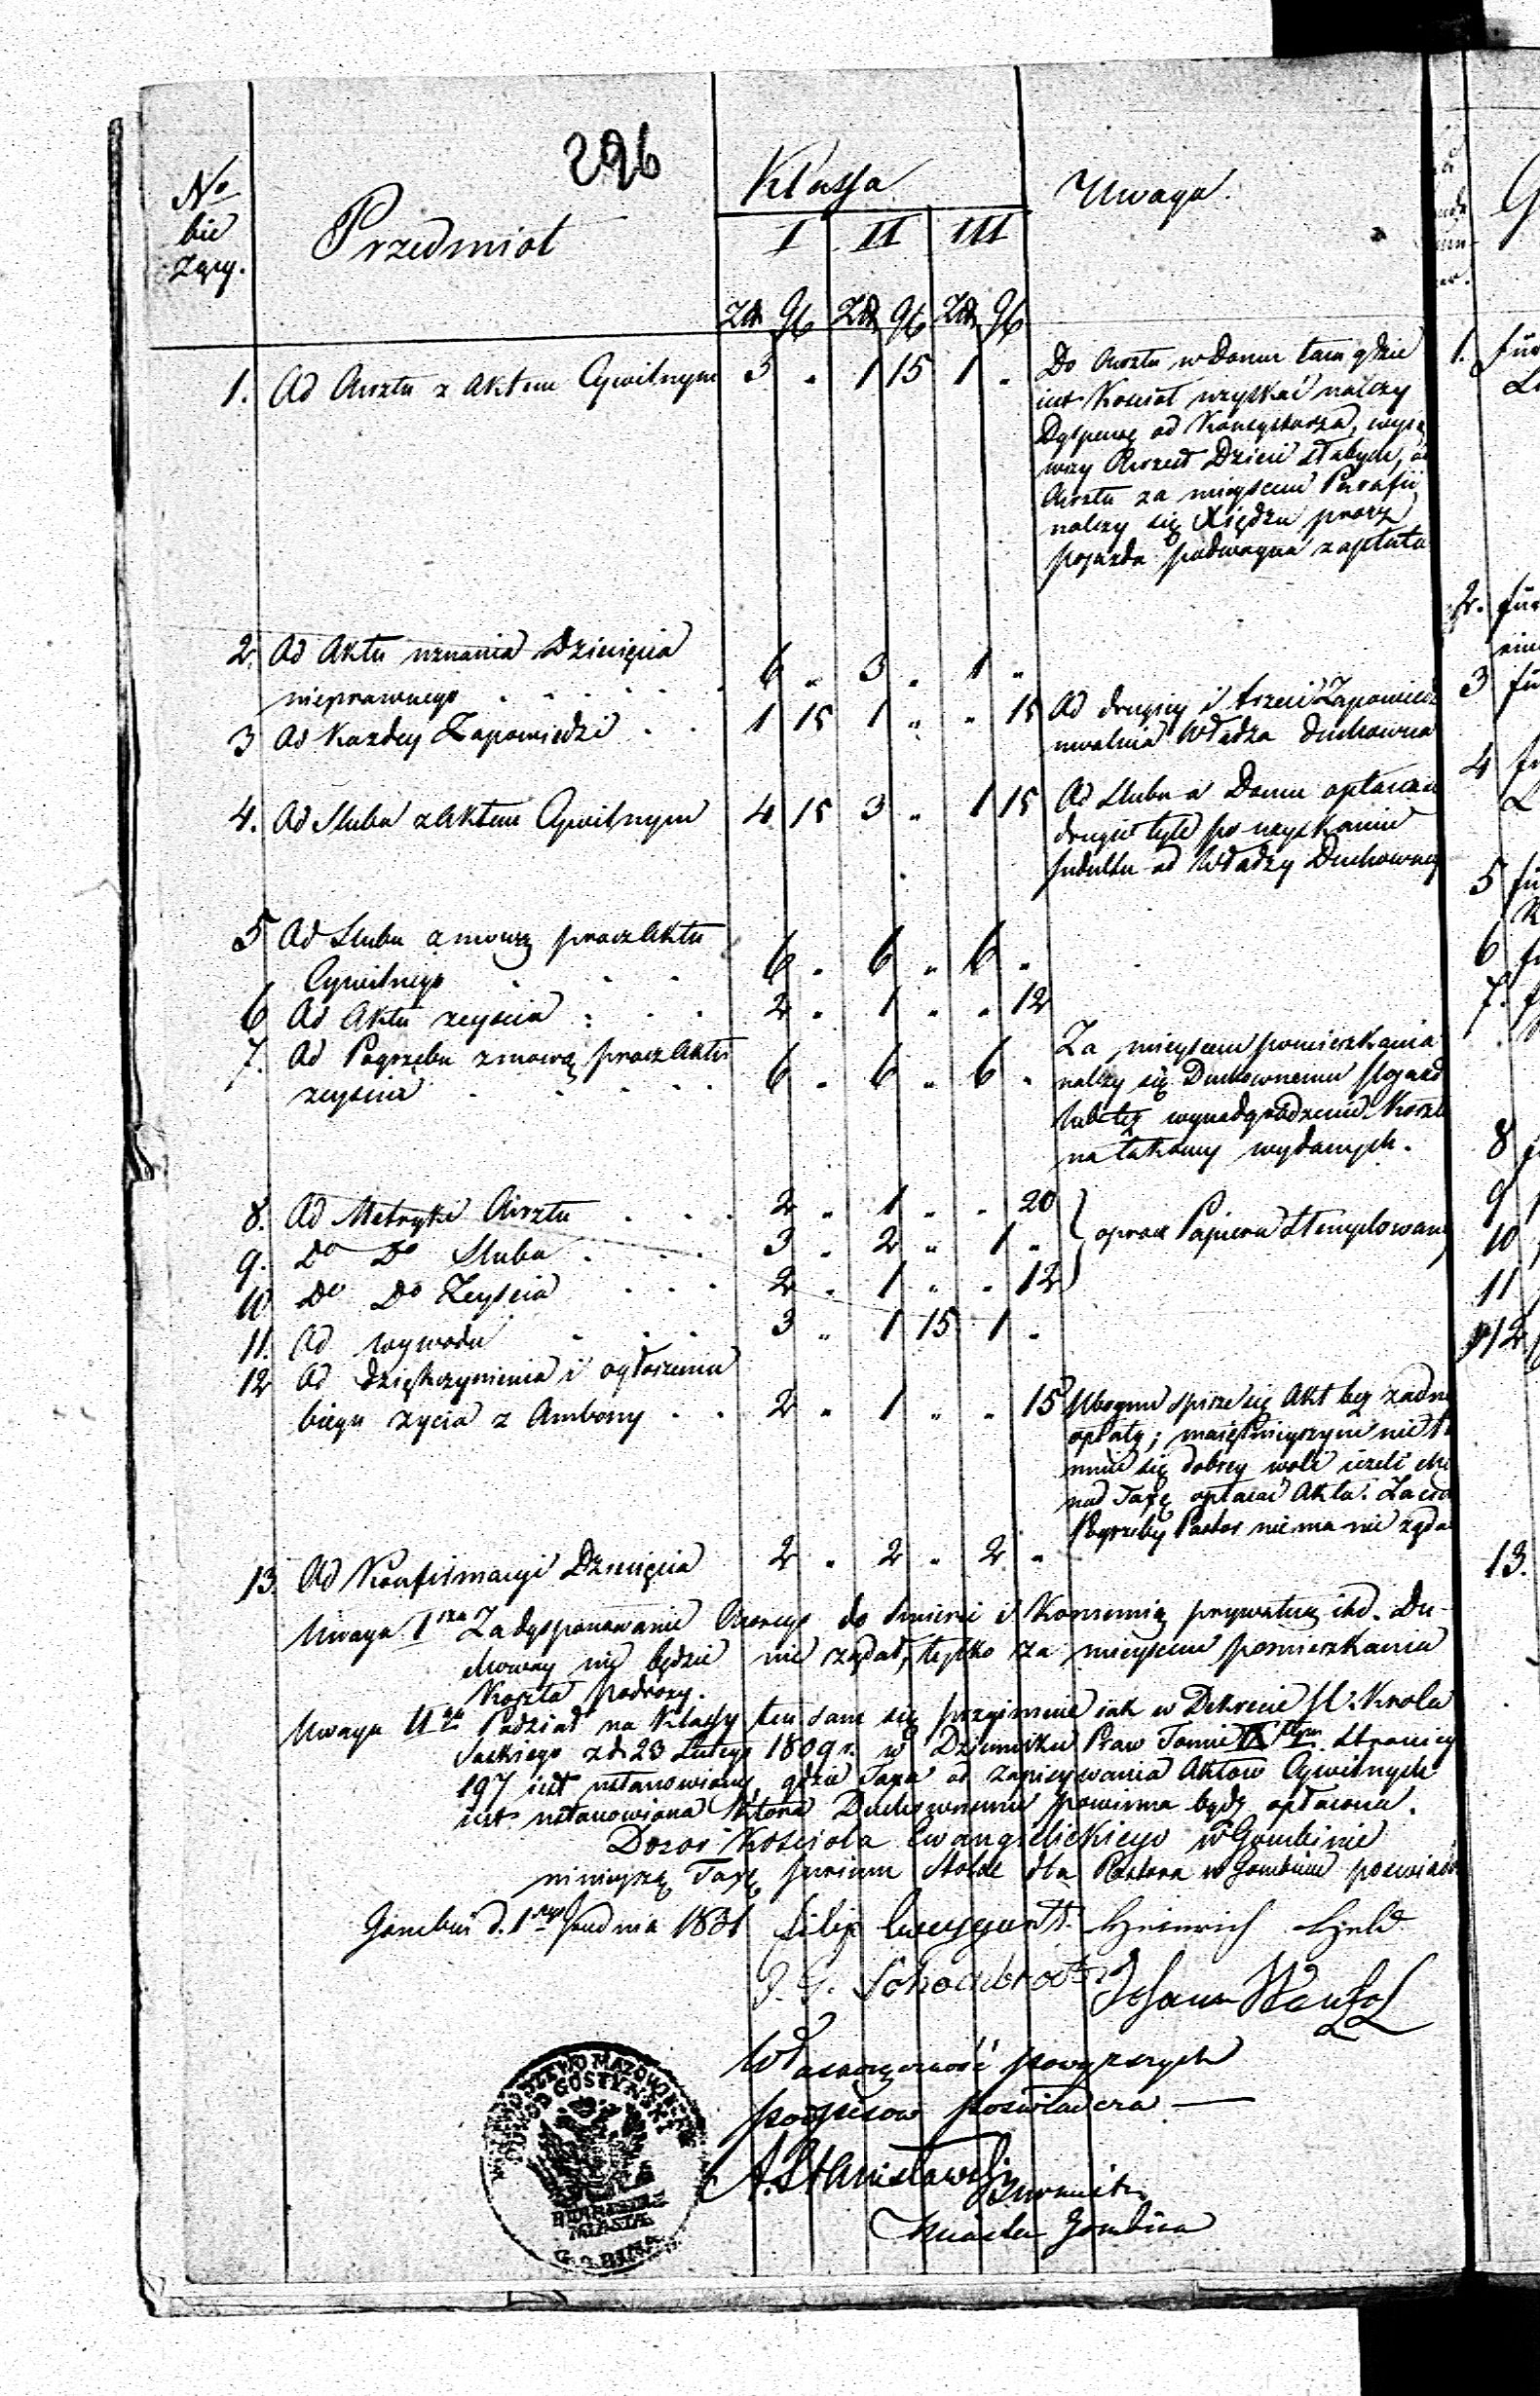 296
No
bie
żący.
Przedmiot
Klassa
I II III
Uwaga.
Zł gr Zł gr Zł gr
1. Od Chrztu z Aktem Cywilnym 3 „ 1 15 1 „
Do Chrztu w Domu tam gdzie
iest Kościoł uzyskać należy
Dyspensę od Konsystorza,
wszy Chrzest Dzieci słabych, od
Chrztu za mieyscem Parafii
należy się Xiędzu prócz
pojazdu podwoyna zapłata
2. Od Aktu uznania Dziecięcia
nieprawnego . . . . . 6 „ 3 „ 1 „
3 Od Każdey Zapowiedzi . . 1 15 1 „ „ 15
Od drugiey i trzeci Zapowiedzi
uwalnia Władza Duchowna
4. Od Slubu z Aktem Cywilnym 4 15 3 „ 1 15
Od Slubu w Domu opłaca się
drugie tyle po uzyskaniu
Indultu od Władzy Duchowney
5 Od Slubu z mową procz Aktu
Cywilnego . . . 6 „ 6 „ 6 „
6 Od Aktu zeyscia . . . 2 „ 1 „ „ 12
7. Od Pogrzebu z mową procz Aktu
zeyscia . . . . 6 „ 6 „ 6 „
Za mieyscem pomieszkania
należy się Duchownemu Pojazd
lub też wynadgrodzenie Koszt
na takowy wydanych.
8. Od Metryki Chrztu . . . 2 „ 1 „ „ 20
9. Do Do Slubu . . . 3 „ 2 „ 1 „
oprocz Papieru Stemplowane
10 Do Do Zeyscia . . . 2 „ 1 „ „ 12
11. Od wywodu . . . 3 „ 1 15 1 „
12 Od dziękczynienia i ogłoszenia
biegu życia z Ambony . . 2 „ 1 „ „ 15
Ubogim spisze się Akt bez żadne
opłaty; maiętnieyszym nie
muie się dobrey woli ieżeli
nad Taxę opłacać Akta. Za
Pogrzeby Pastor nie ma nic żąda
13 Od Konfirmacyi Dziecięcia 2 „ 2 „ 2 „
Uwaga 1sza Za dysponowanie Chorego do śmierci i Kommunią prywatną itd. Du-
chowny nie będzie nic rządał, tylko za mieyscem pomieszkania
Koszta podroży.
Uwaga IIga Podział na Klassy ten sam się przyimuie iak w Dekrecie Króla
Saskiego z d. 23 Lutego 1809 r. w Dzienniku Praw Tomie Stronicy
197 iest ustanowiony, gdzie Taxa od zapisywania Aktow Cywilnych
iest ustanowiona ktora Duchownemu powinna bydź opłacona.
Dozor Kościoła Ewangelickiego w Gombinie
ninieyszę Taxę Jurium Stolae dla Pastora w Gombinie poswiadc
Gombin d. 1go Grudnia 1831 Filip Heinrich Held
J. G. Johann
Własnoręczność powyższych
podpisow poswiadcza —
A. Stanisławski
Burmistrz
Miasta Gombina
WOIEWODZTWO MAZOWIECKIE
OBWOD GOSTYNSKI
BURMISTRZ
MIASTA
GĄBINA
1. für
2. für
3 für
4 für
5 für
6
7.
8
9
10
11
12
13.